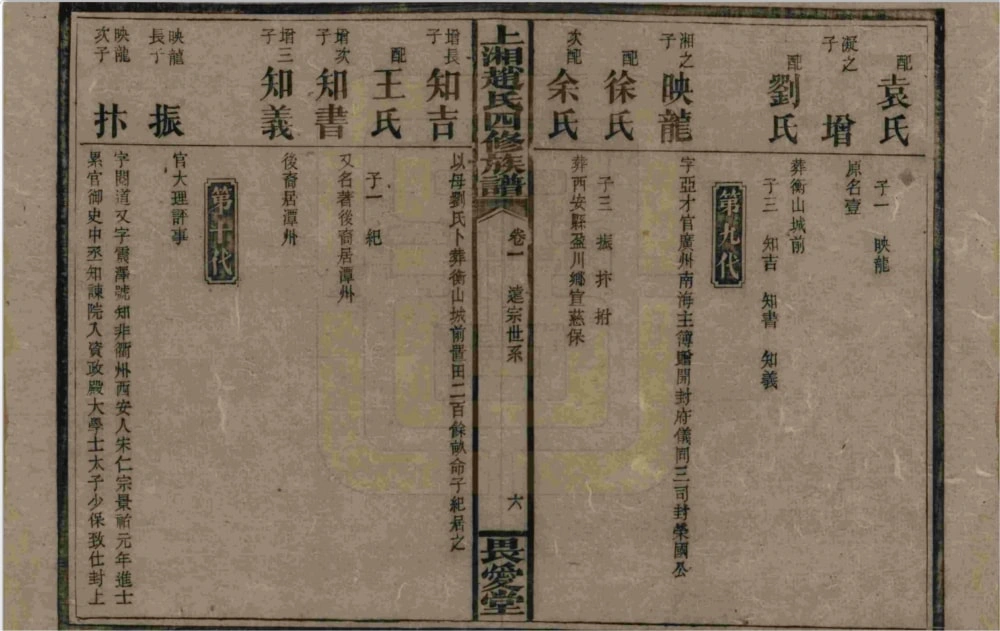 配 袁氏
子一 映龍
凝之子 增
原名壹
配 劉氏
葬衡山城前
子三 知吉 知書 知義
第九代
湘之子 映龍
字亞才官廣州南海主簿贈開封府儀同三司封榮國公
配 徐氏
子三 振 抃 拊
次配 余氏
葬西安縣盈川鄉宣慈保
上湘趙氏四修族譜 卷一 遠宗世系 六 畏愛堂
增長子 知吉
以母劉氏卜葬衡山城前置田二百餘畝命子紀居之
配 王氏
子一 紀
增次子 知書
又名著後裔居潭州
增三子 知義
後裔居潭州
第十代
映龍長子 振
官大理評事
映龍次子 抃
字閱道又字震澤號知非衢州西安人宋仁宗景祐元年進士
累官御史中丞知諫院入資政殿大學士太子少保致仕封上